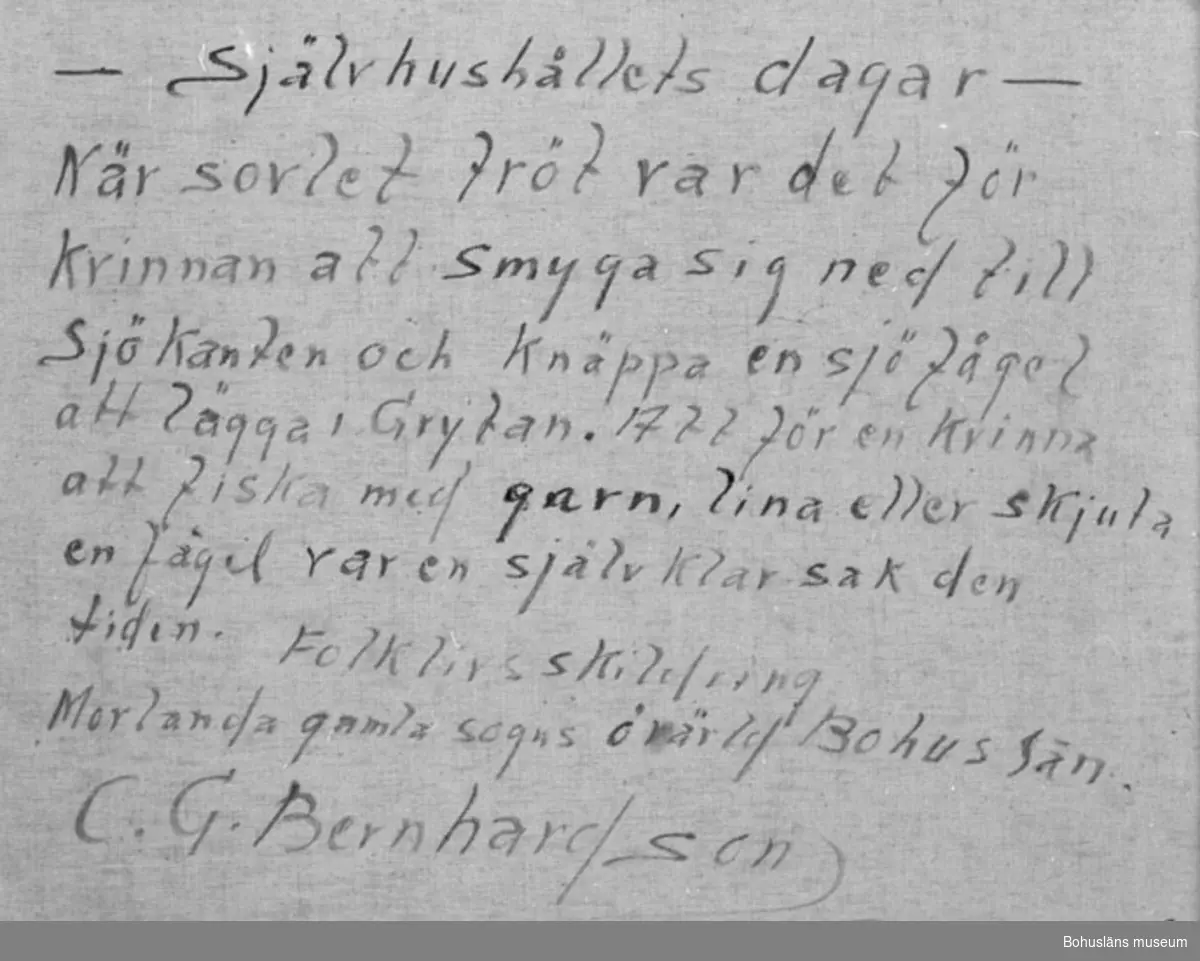 — Självhushållets dagar —
När sovlet tröt var det för
kvinnan att smyga sig ned till
Sjökanten och knäppa en sjöfågel
att lägga i Grytan. Att för en kvinna
att fiska med garn, lina eller skjuta
en fågel var en självklar sak den
tiden. Folklivsskildring
Morlanda gamla sogns övärld Bohuslän.
C. G. Bernhardson
Bohusläns museum